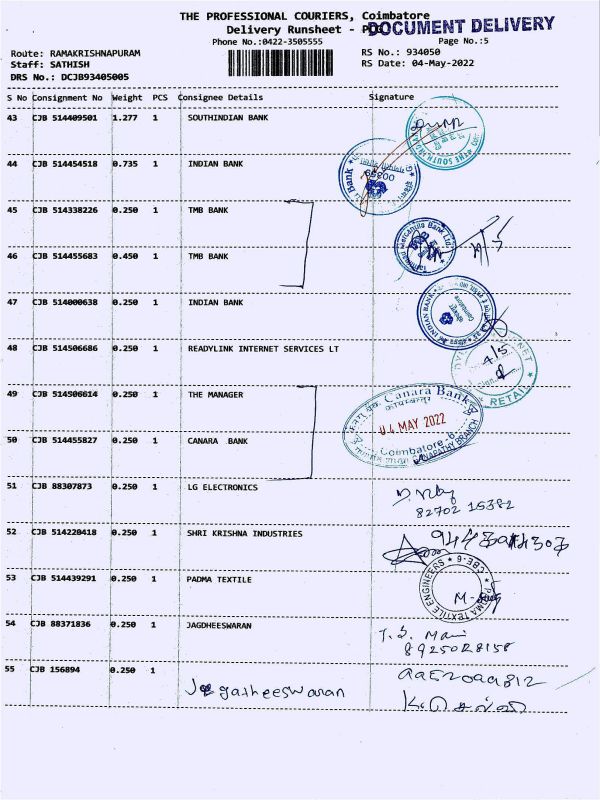 THE PROFESSIONAL COURIERS, Coimbatore
Delivery Runsheet -
DOCUMENT DELIVERY
Phone No.:0422-3505555
Page No.:5
Route: RAMAKRISHNAPURAM
RS No.: 934050
Staff: SATHISH
RS Date: 04-May-2022
DRS No.: DCJB93405005
S No Consignment No Weight PCS Consignee Details Signature
43 CJB 514409501 1.277 1 SOUTHINDIAN BANK
44 CJB 514454518 0.735 1 INDIAN BANK
00389
45 CJB 514338226 0.250 1 TMB BANK
Tamilnad Mercantile Bank Ltd.
46 CJB 514455683 0.450 1 TMB BANK
47 CJB 514000638 0.250 1 INDIAN BANK
INDIAN BANK
48 CJB 514506686 0.250 1 READYLINK INTERNET SERVICES LT
4/5
RETAIL
49 CJB 514506614 0.250 1 THE MANAGER
Canara Bank
04 MAY 2022
50 CJB 514455827 0.250 1 CANARA BANK
Coimbatore
GANAPATHY BRANCH
51 CJB 88307873 0.250 1 LG ELECTRONICS
82702 15382
52 CJB 514220418 0.250 1 SHRI KRISHNA INDUSTRIES
53 CJB 514439291 0.250 1 PADMA TEXTILE
PADMA TEXTILE ENGINEERS * CBE-6
54 CJB 88371836 0.250 1 JAGDHEESWARAN
T. S. Mani
55 CJB 156894 0.250 1
Jagatheeswaran